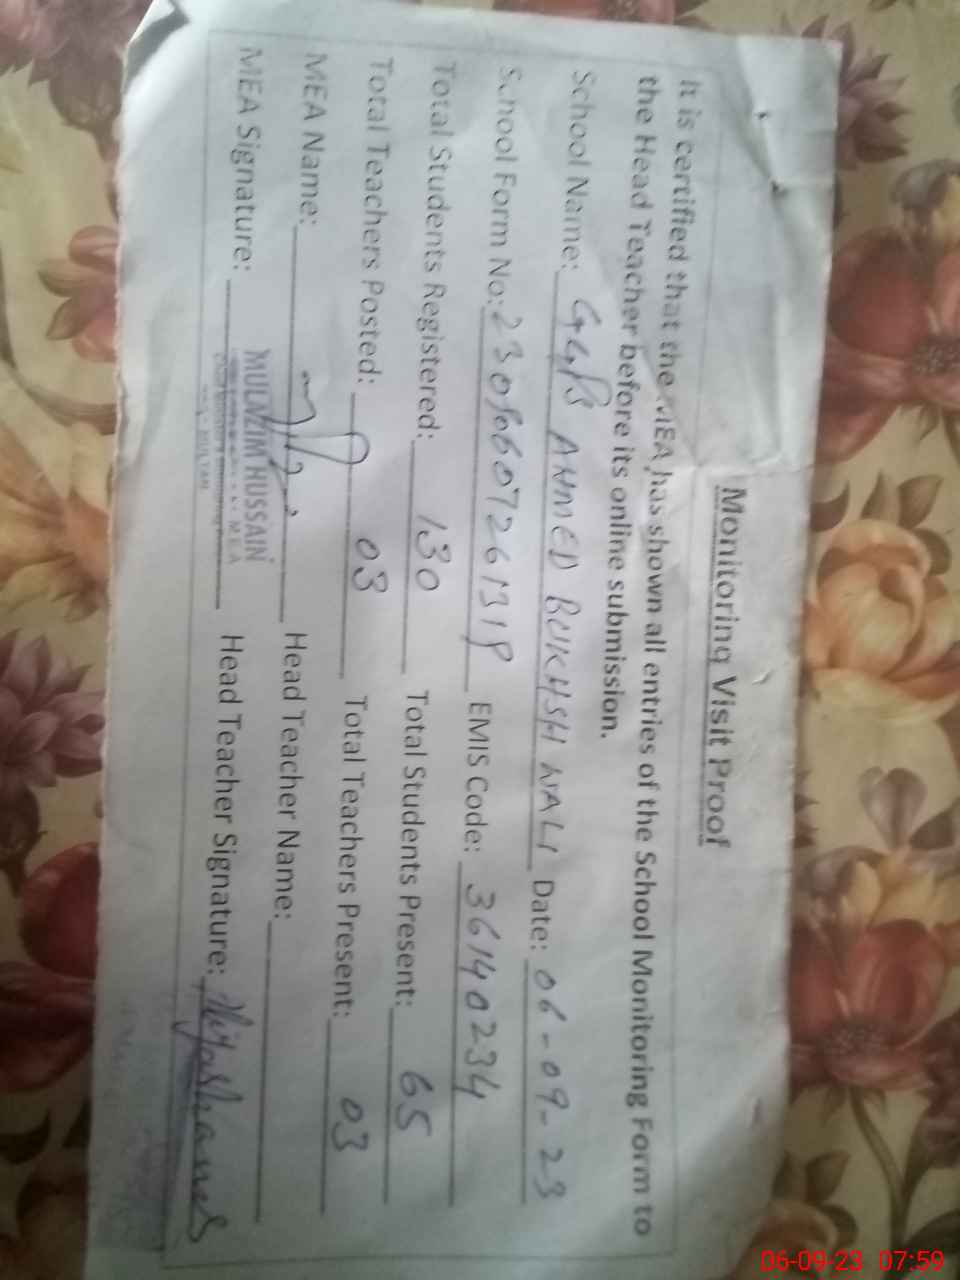 Monitoring Visit Proof
It is certified that the MEA has shown all entries of the School Monitoring Form to
the Head Teacher before its online submission.
School Name: GGPS AHMED BUKHSH WALI Date: 06-09-23
School Form No: EMIS Code: 36140234
Total Students Registered: 130 Total Students Present: 65
Total Teachers Posted: 03 Total Teachers Present: 03
MEA Name: Head Teacher Name:
MULAZIM HUSSAIN
MEA
MULTAN
MEA Signature: Head Teacher Signature:
06-09-23 07:59